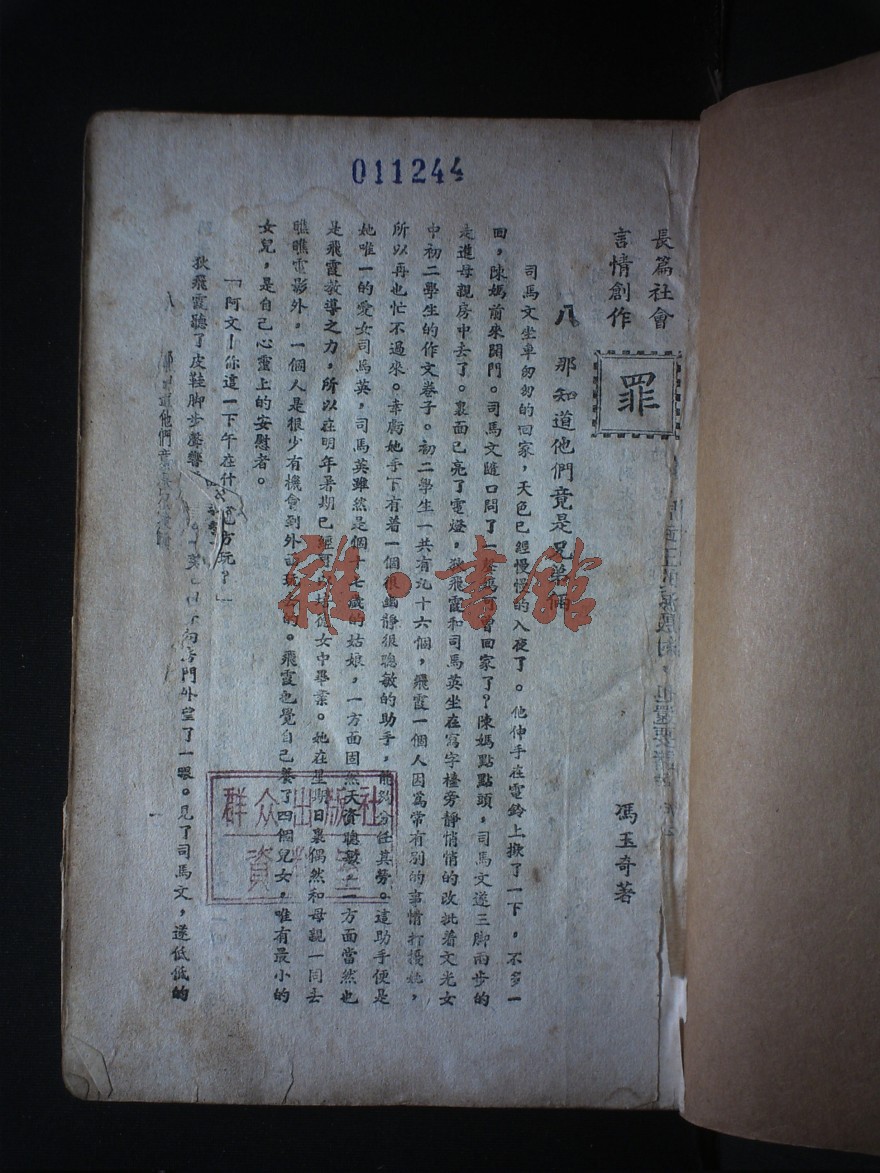 011244
長篇社會
言情創作
罪
馮玉奇著
八 那知道他們竟是兄弟倆
司馬文坐車匆匆的回家,天色已經慢慢的入夜了。他伸手在電鈴上撳了一下。不多一
回,陳媽前來開門。司馬文隨口問了一聲媽可曾回家了?陳媽點點頭,司馬文遂三脚兩步的
走進母親房中去了。裏面已亮了電燈,狄飛霞和司馬英坐在寫字檯旁靜悄悄的改批着文光女
中初二學生的作文卷子。初二學生一共有九十六個,飛霞一個人因爲常有別的事情打擾她,
所以再也忙不過來。幸虧她手下有着一個很幽靜很聰敏的助手,能夠分任其勞。這助手便是
她唯一的愛女司馬英,司馬英雖然是個十七歲的姑娘,一方面固然天資聰敏,一方面當然也
是飛霞教導之力,所以在明年暑期已經可以高中女中畢業。她在星期日裏偶然和母親一同去
瞧瞧電影外,一個人是很少有機會到外面玩去的。飛霞也覺自己養了四個兒女,唯有最小的
女兒,是自己心靈上的安慰者。
「阿文!你這一下午在什 地方玩?」
狄飛霞聽了皮鞋脚步聲響 房門外望了一眼。見了司馬文,遂低低的
八 那知道他們竟是兄弟倆
群众出版社
資料室
雜·書館